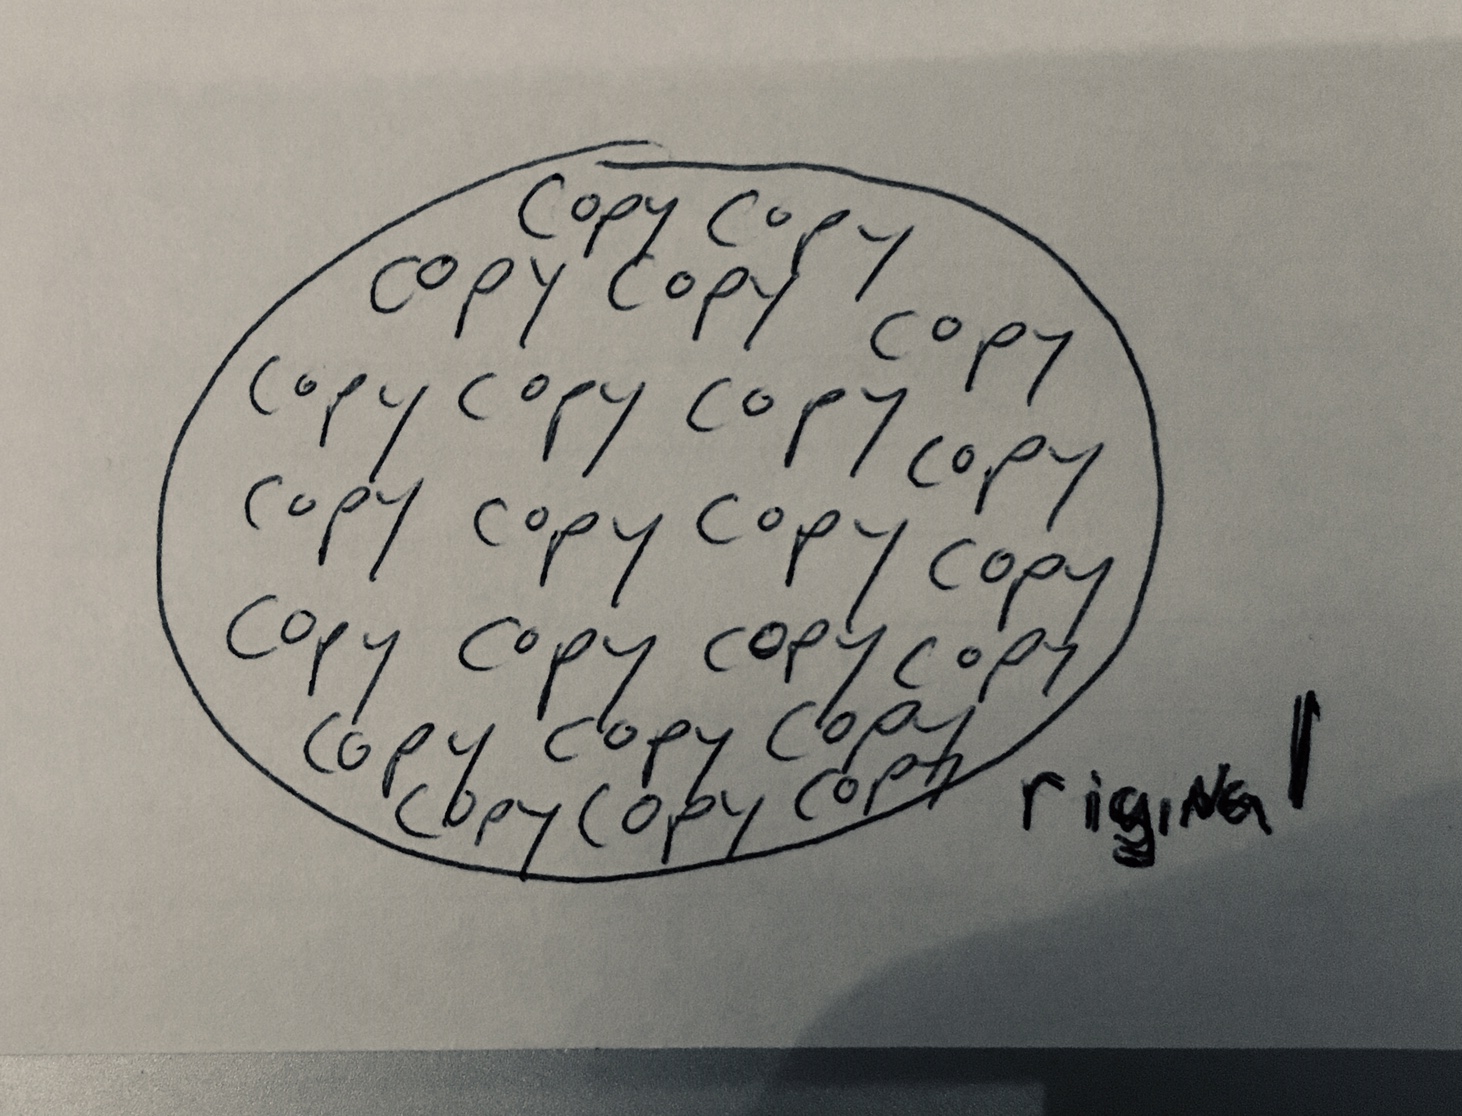 Copy Copy
Copy Copy
Copy
Copy Copy Copy
Copy
Copy Copy Copy
Copy
Copy Copy Copy Copy
Copy Copy Copy
Copy Copy Copy
riginal